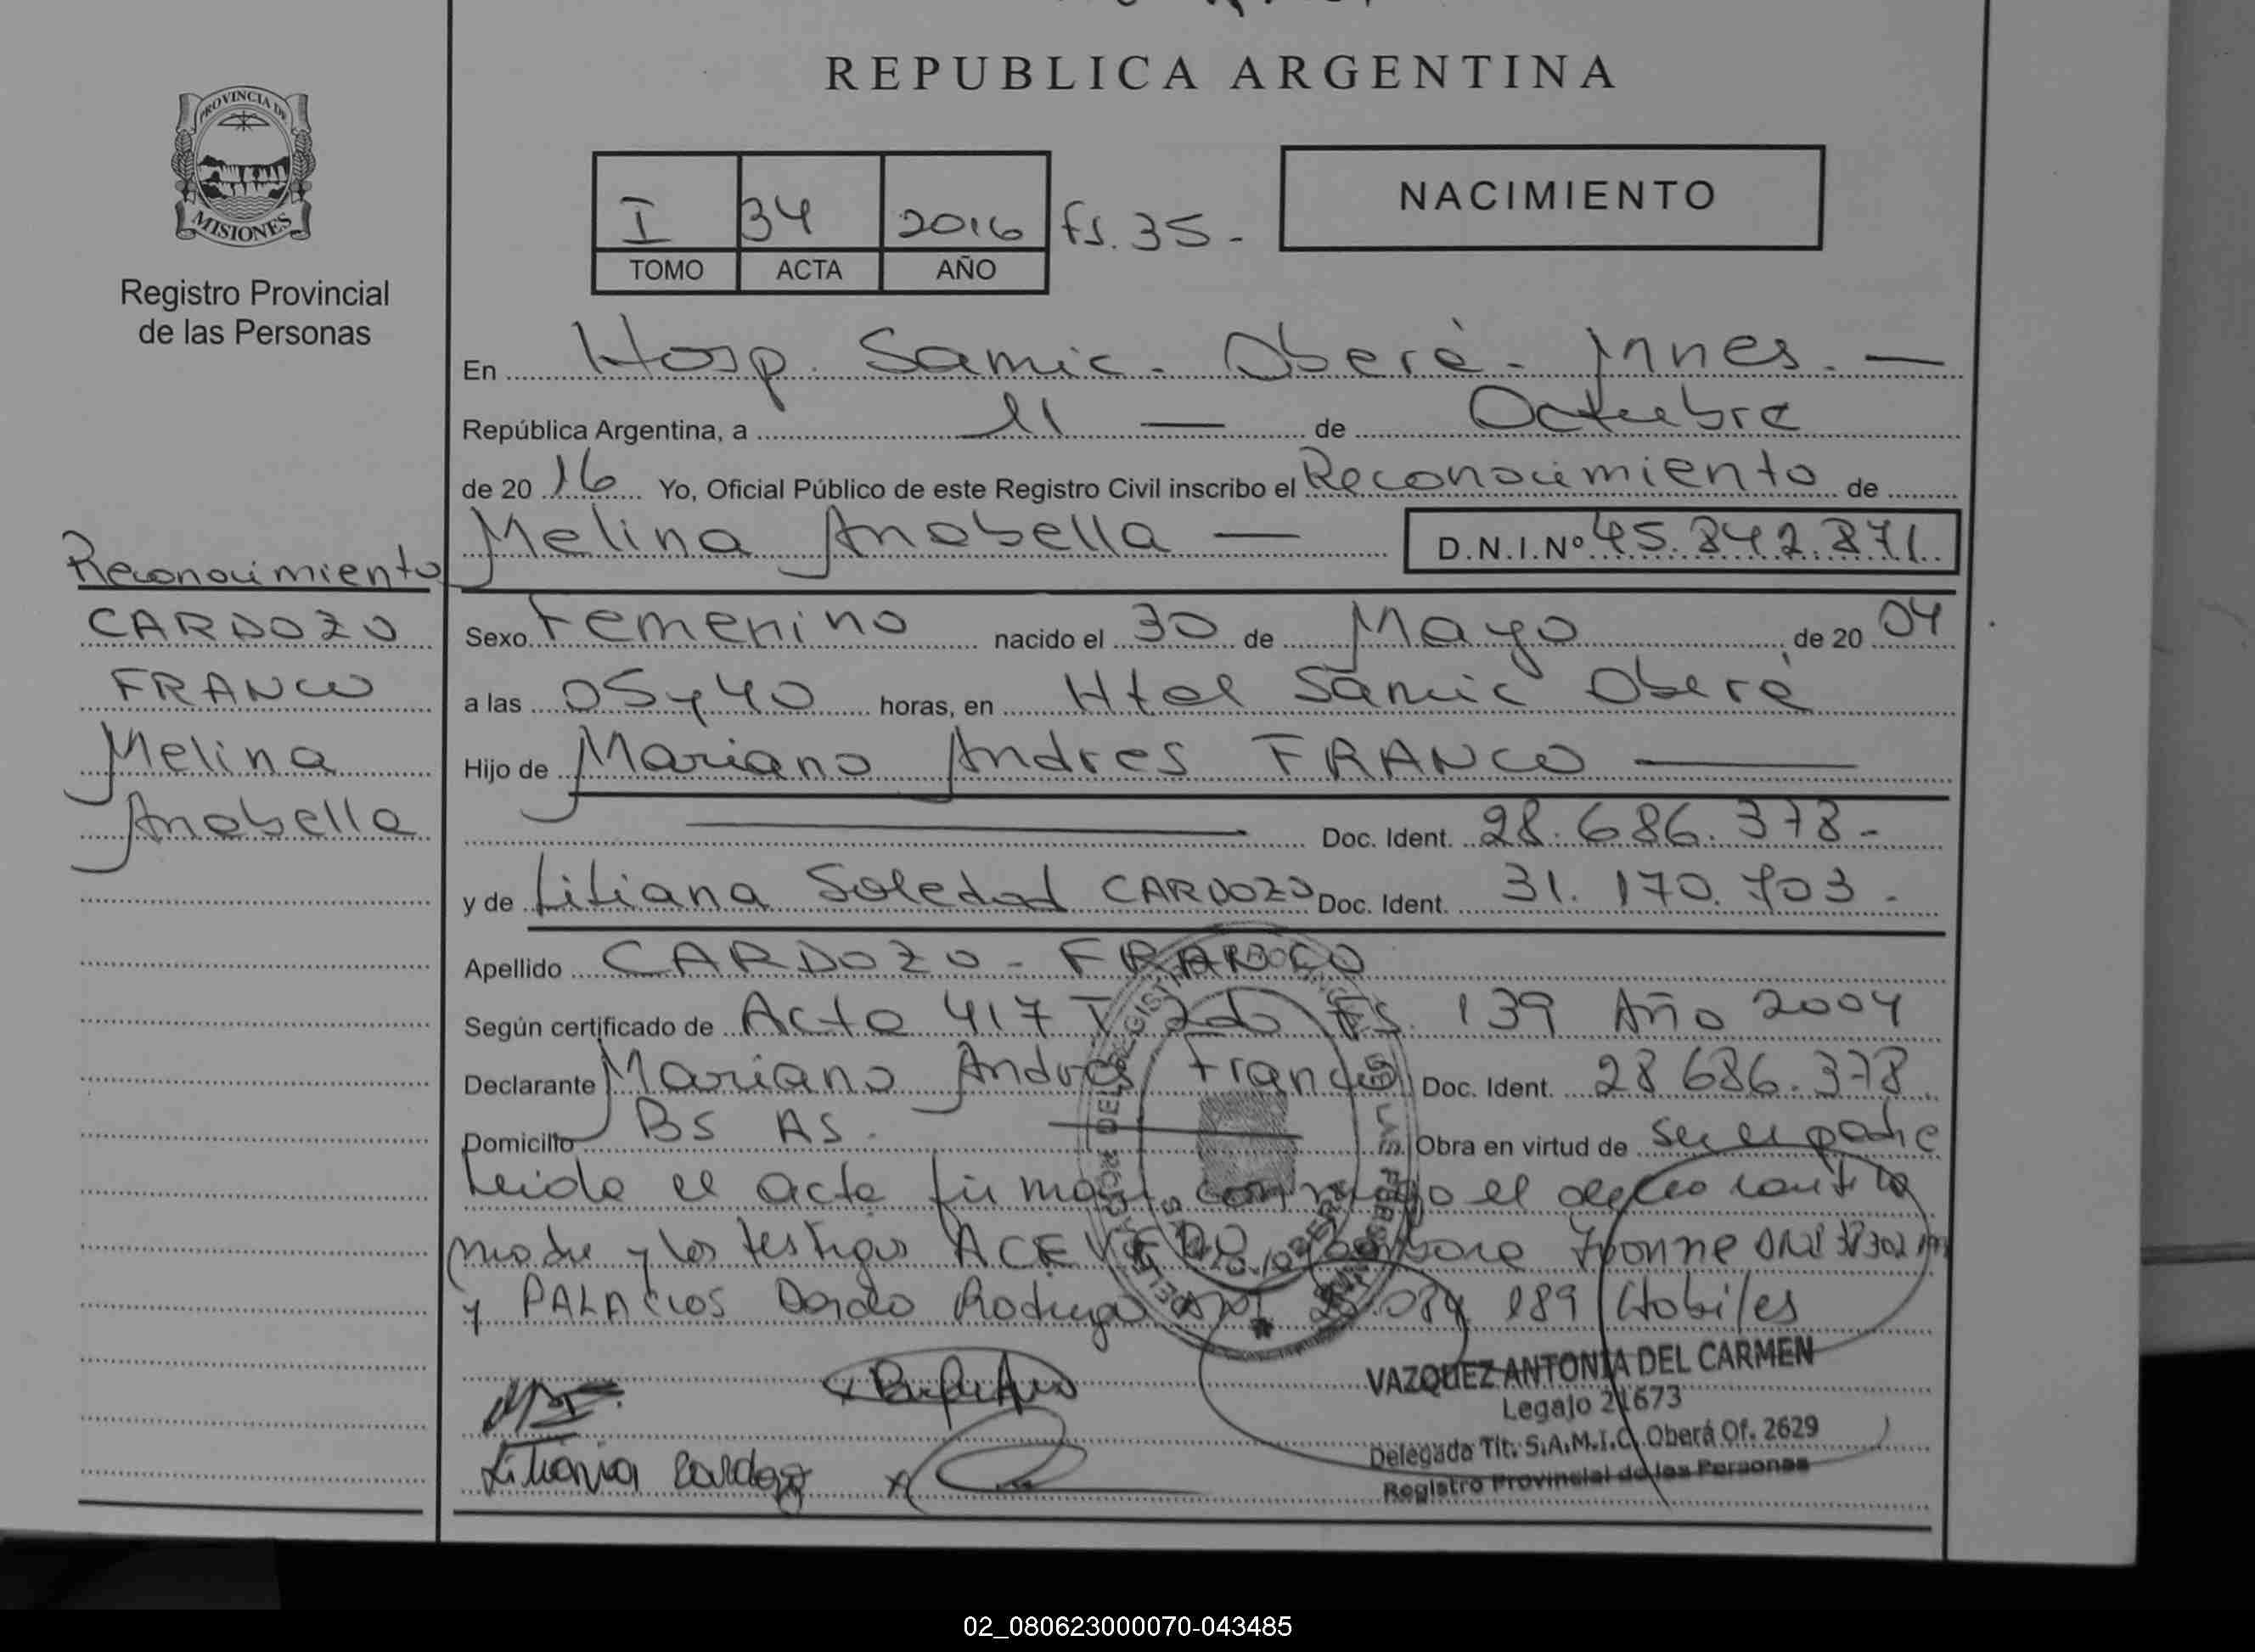 REPUBLICA ARGENTINA
PROVINCIA DE
MISIONES
Registro Provincial
de las Personas
I 34 2016 fs. 35.-
TOMO ACTA AÑO
NACIMIENTO
En Hosp. Samic. Oberá - Mnes. —
República Argentina, a 11 — de Octubre
de 2016 Yo, Oficial Público de este Registro Civil inscribo el Reconocimiento de
Melina Anabella — D.N.I.Nº 45.842.871.
Reconocimiento
CARDOZO
FRANCO
Melina
Anabella
Sexo Femenino nacido el 30 de Mayo de 2004
a las 05 y 40 horas, en Htal Samic Oberá
Hijo de Mariano Andres FRANCO —
Doc. Ident. 28.686.378.-
y de Liliana Soledad CARDOZO Doc. Ident. 31.170.703.-
Apellido CARDOZO - FRANCO
Según certificado de Acta 417 T 2do Fs. 139 Año 2004
Declarante Mariano Andres Franco Doc. Ident. 28.686.378.
Domicilio Bs As. — Obra en virtud de ser el padre
Leida el acta firman conmigo el declarante la
madre y los testigos ACEVEDO Ivonne DNI
y PALACIOS Rodrigo DNI 189 Habiles
Liliana Cardozo
VAZQUEZ ANTONIA DEL CARMEN
Legajo 21673
Delegada Tit. S.A.M.I.C. Oberá Of. 2629
Registro Provincial de las Personas
02_080623000070-043485